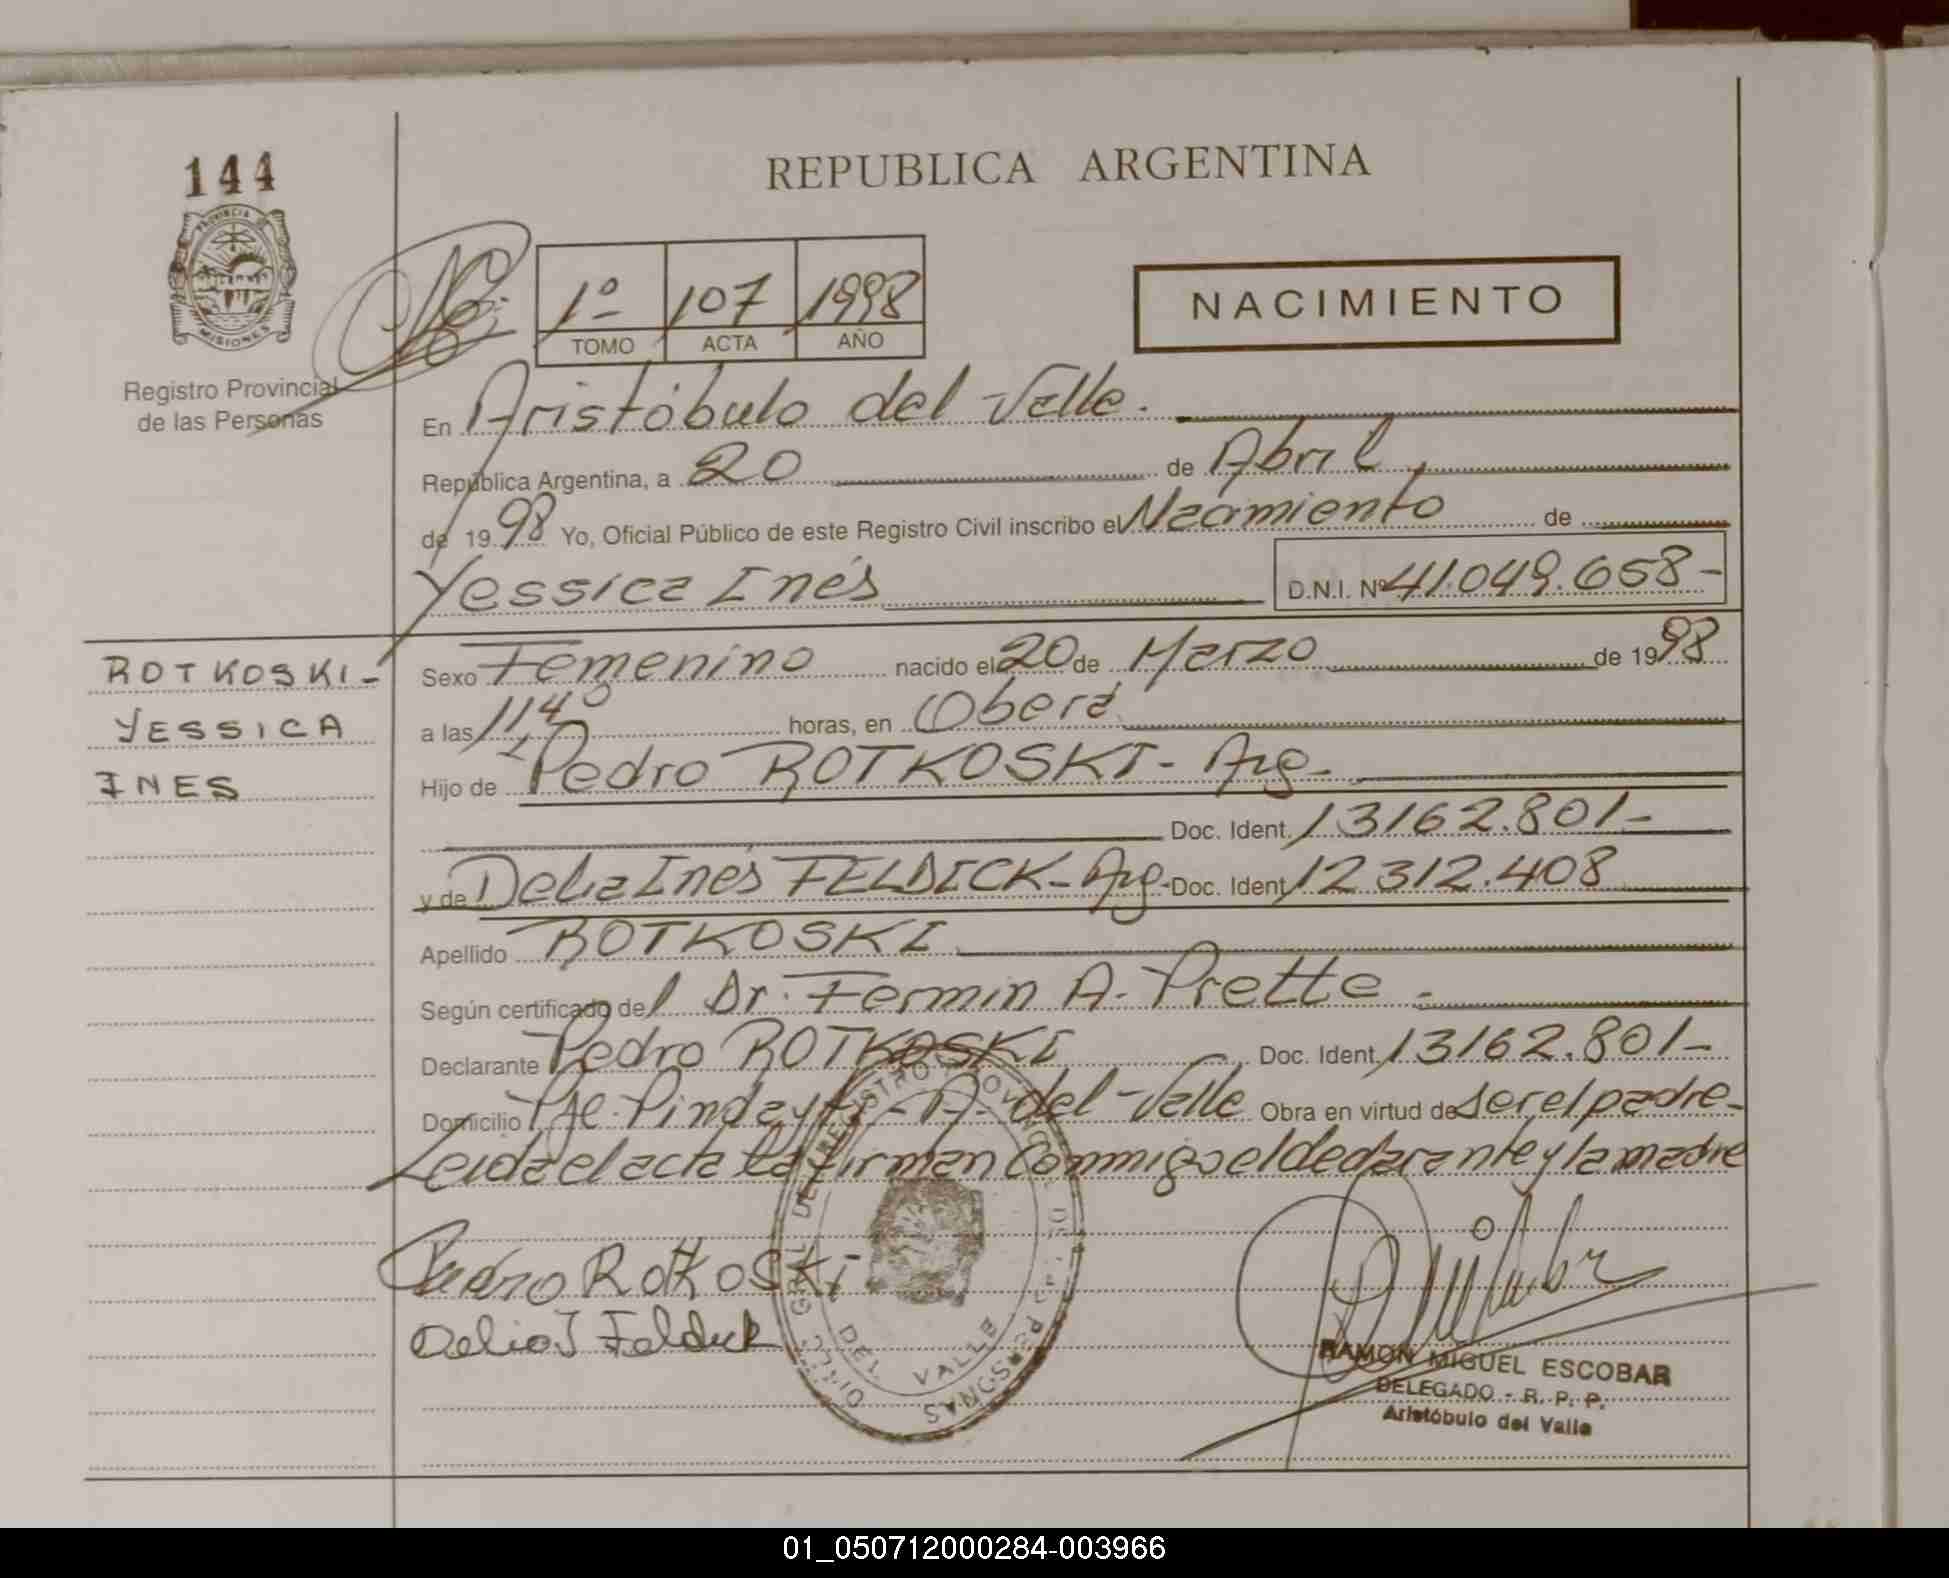 144
REPUBLICA ARGENTINA
PROVINCIA DE
MISIONES
Registro Provincial
de las Personas
1º 107 1998
TOMO ACTA AÑO
NACIMIENTO
En Aristóbulo del Valle.
República Argentina, a 20 de Abril
de 1998 Yo, Oficial Público de este Registro Civil inscribo el Nacimiento de
Yessica Inés D.N.I. Nº 41.049.658-
ROTKOSKI-
YESSICA
INES
Sexo Femenino nacido el 20 de Marzo de 1998
a las 1140 horas, en Oberá
Hijo de Pedro ROTKOSKI- Arg-
Doc. Ident. 13162.801-
y de Delia Inés FELDICK- Arg- Doc. Ident. 12312.408
Apellido ROTKOSKI
Según certificado del Dr. Fermin A. Prette -
Declarante Pedro ROTKOSKI Doc. Ident. 13162.801-
Domicilio Pje. Pindayti - A. del Valle Obra en virtud de ser el padre-
Leida el acta la firman Conmigo el declarante y la madre
Pedro ROTKOSKI
Delia I Feldick
DEL VALLE
PERSONAS
RAMON MIGUEL ESCOBAR
DELEGADO - R. P. P.
Aristóbulo del Valle
01_050712000284-003966